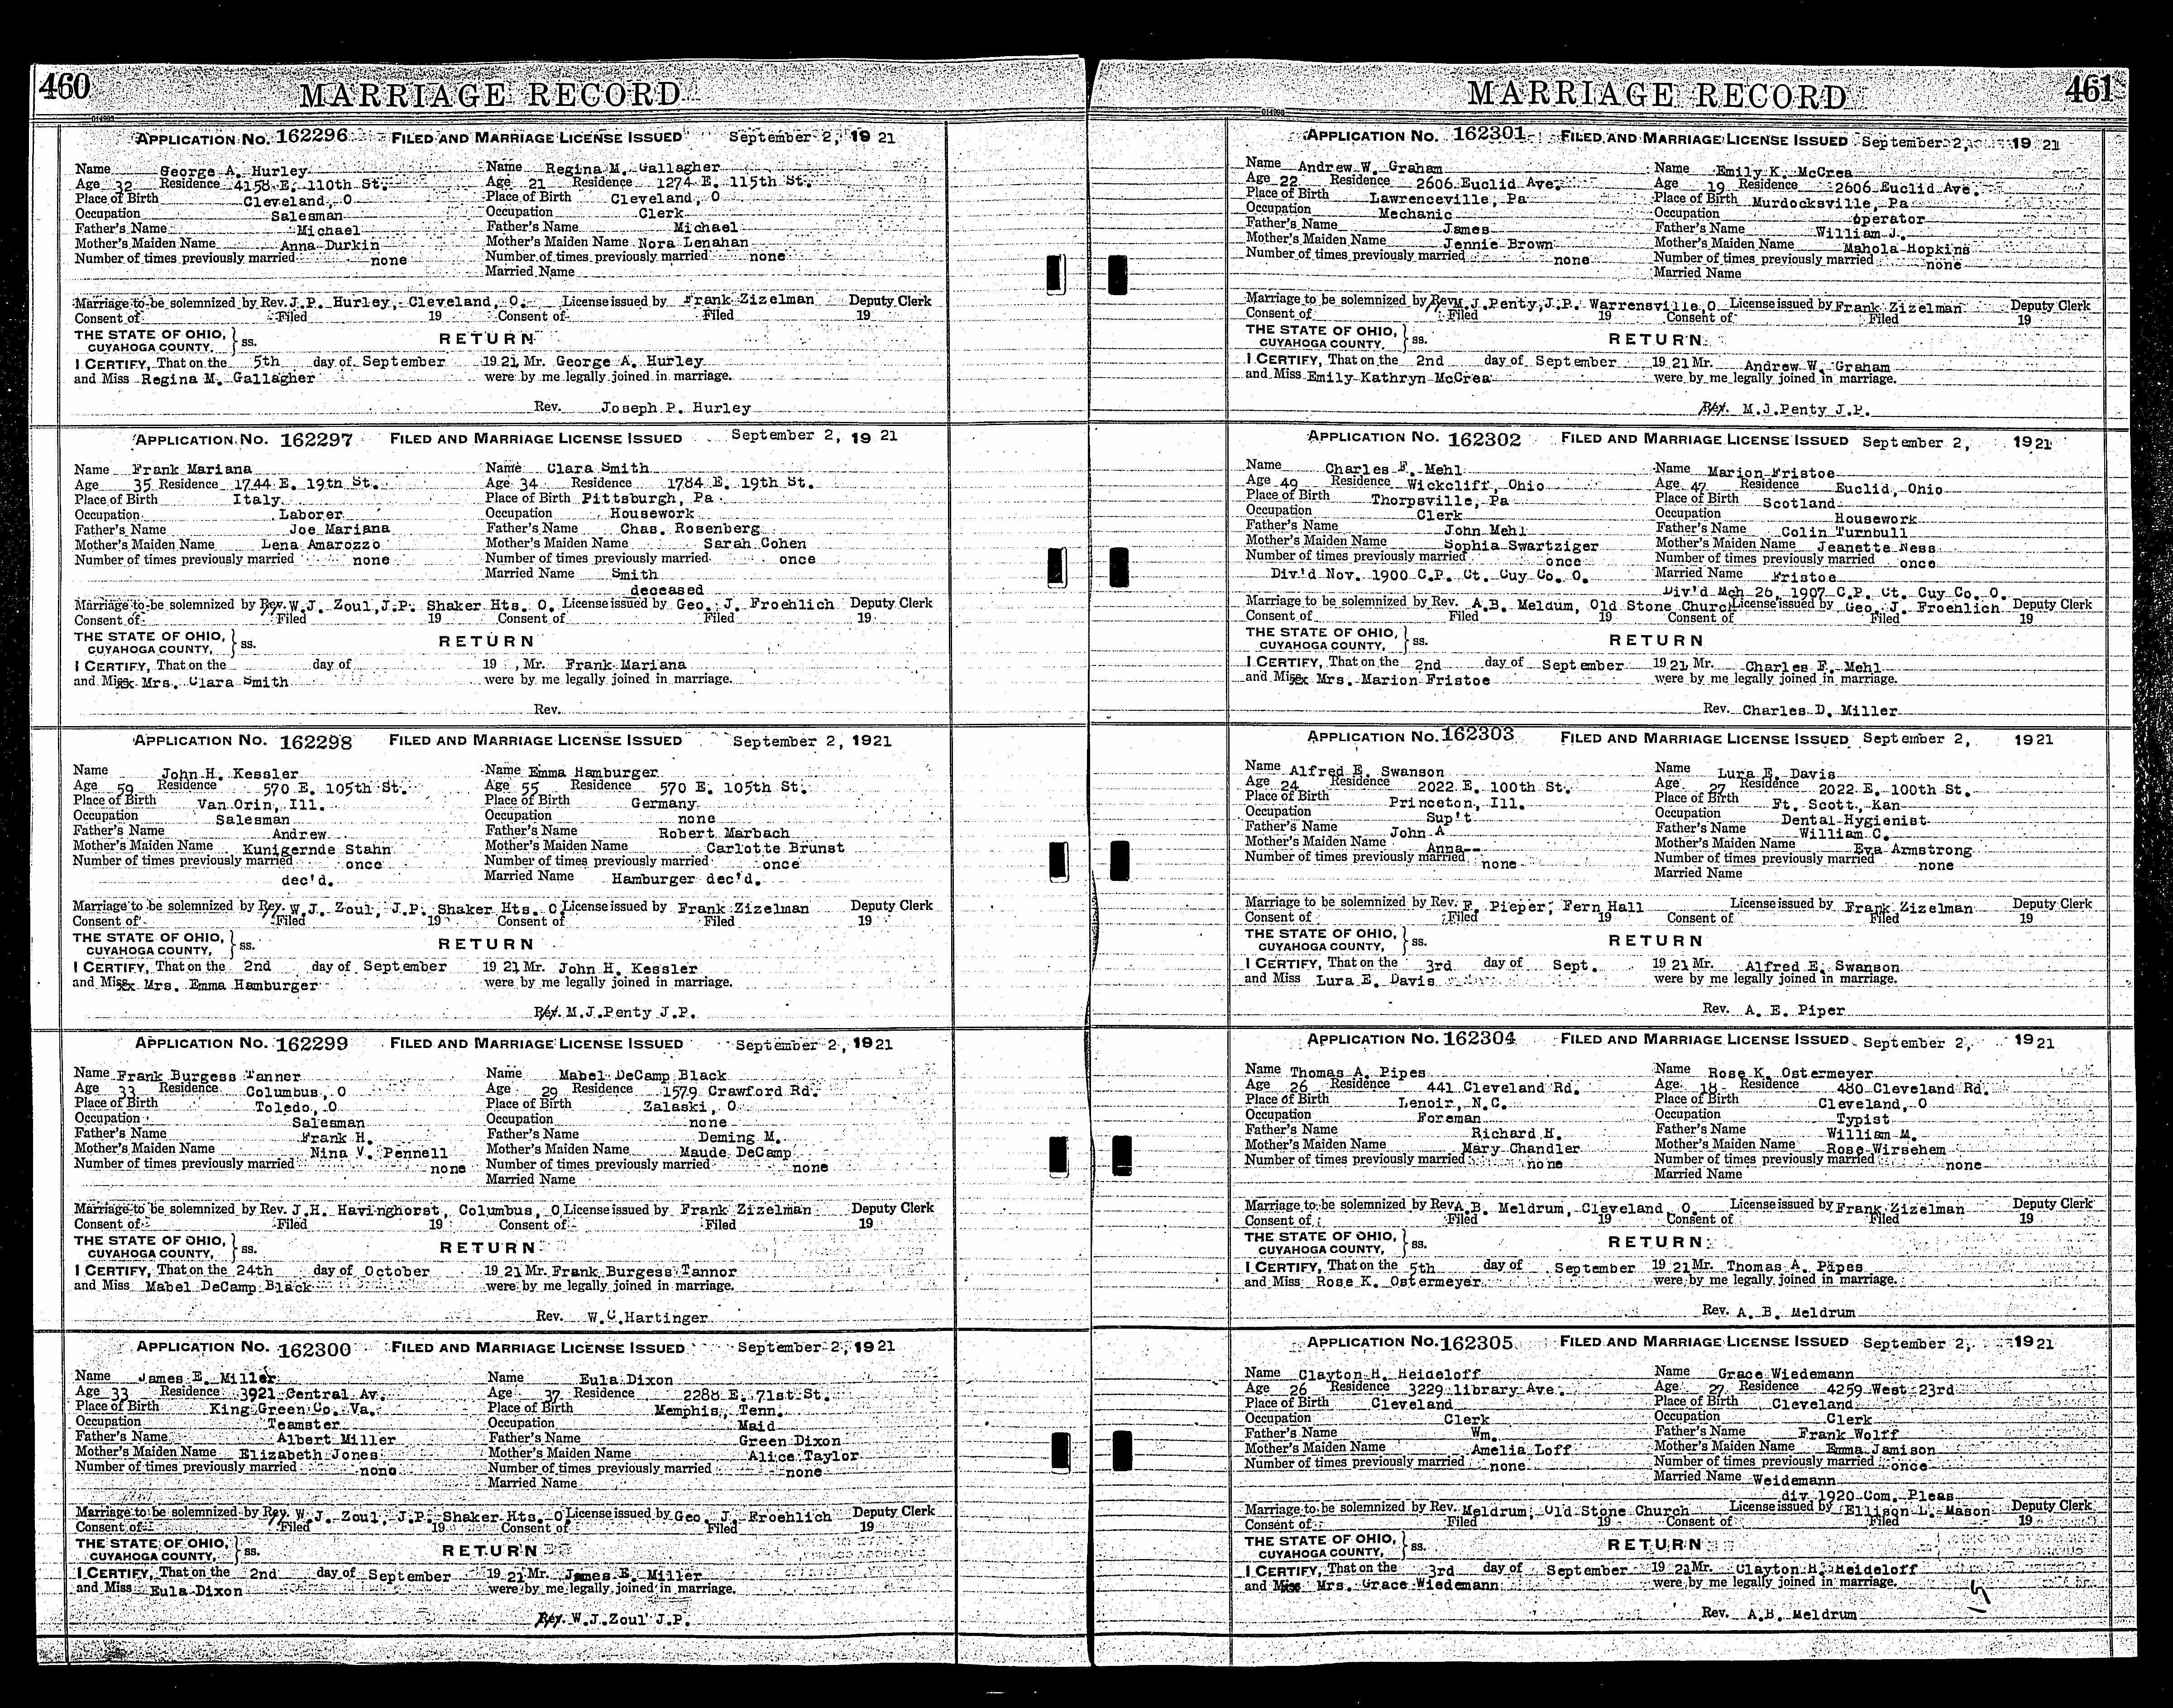 460
MARRIAGE RECORD
014998
APPLICATION No. 162296 FILED AND MARRIAGE LICENSE ISSUED September 2, 19 21
Name George A. Hurley Name Regina M. Gallagher
Age 32 Residence 4158 E. 110th St. Age 21 Residence 1274 E. 115th St.
Place of Birth Cleveland, O Place of Birth Cleveland, O
Occupation Salesman Occupation Clerk
Father's Name Michael Father's Name Michael
Mother's Maiden Name Anna Durkin Mother's Maiden Name Nora Lenahan
Number of times previously married none Number of times previously married none
Married Name
Marriage to be solemnized by Rev. J.P. Hurley, Cleveland, O. License issued by Frank Zizelman Deputy Clerk
Consent of Filed 19 Consent of Filed 19
THE STATE OF OHIO, CUYAHOGA COUNTY, } ss. RETURN
I CERTIFY, That on the 5th day of September 19 21, Mr. George A. Hurley
and Miss Regina M. Gallagher were by me legally joined in marriage.
Rev. Joseph P. Hurley
APPLICATION No. 162297 FILED AND MARRIAGE LICENSE ISSUED September 2, 19 21
Name Frank Mariana Name Clara Smith
Age 35 Residence 1744 E. 19th St. Age 34 Residence 1784 E. 19th St.
Place of Birth Italy Place of Birth Pittsburgh, Pa
Occupation Laborer Occupation Housework
Father's Name Joe Mariana Father's Name Chas. Rosenberg
Mother's Maiden Name Lena Amarozzo Mother's Maiden Name Sarah Cohen
Number of times previously married none Number of times previously married once
Married Name Smith
deceased
Marriage to be solemnized by Rev. W.J. Zoul, J.P. Shaker Hts. O. License issued by Geo. J. Froehlich Deputy Clerk
Consent of Filed 19 Consent of Filed 19
THE STATE OF OHIO, CUYAHOGA COUNTY, } ss. RETURN
I CERTIFY, That on the day of 19 , Mr. Frank Mariana
and Miss Mrs. Clara Smith were by me legally joined in marriage.
Rev.
APPLICATION No. 162298 FILED AND MARRIAGE LICENSE ISSUED September 2, 1921
Name John H. Kessler Name Emma Hamburger
Age 59 Residence 570 E. 105th St. Age 55 Residence 570 E. 105th St.
Place of Birth Van Orin, Ill. Place of Birth Germany
Occupation Salesman Occupation none
Father's Name Andrew Father's Name Robert Marbach
Mother's Maiden Name Kunigernde Stahn Mother's Maiden Name Carlotte Brunst
Number of times previously married once Number of times previously married once
dec'd. Married Name Hamburger dec'd.
Marriage to be solemnized by Rev. W.J. Zoul, J.P. Shaker Hts. O License issued by Frank Zizelman Deputy Clerk
Consent of Filed 19 Consent of Filed 19
THE STATE OF OHIO, CUYAHOGA COUNTY, } ss. RETURN
I CERTIFY, That on the 2nd day of September 19 21 Mr. John H. Kessler
and Miss Mrs. Emma Hamburger were by me legally joined in marriage.
Rev. M.J.Penty J.P.
APPLICATION No. 162299 FILED AND MARRIAGE LICENSE ISSUED September 2, 19 21
Name Frank Burgess Tanner Name Mabel DeCamp Black
Age 33 Residence Columbus, O Age 29 Residence 1579 Crawford Rd.
Place of Birth Toledo, O Place of Birth Zalaski, O
Occupation Salesman Occupation none
Father's Name Frank H. Father's Name Deming M.
Mother's Maiden Name Nina V. Pennell Mother's Maiden Name Maude DeCamp
Number of times previously married none Number of times previously married none
Married Name
Marriage to be solemnized by Rev. J.H. Havinghorst, Columbus, O License issued by Frank Zizelman Deputy Clerk
Consent of Filed 19 Consent of Filed 19
THE STATE OF OHIO, CUYAHOGA COUNTY, } ss. RETURN
I CERTIFY, That on the 24th day of October 19 21 Mr. Frank Burgess Tannor
and Miss Mabel DeCamp Black were by me legally joined in marriage.
Rev. W.C.Hartinger
APPLICATION No. 162300 FILED AND MARRIAGE LICENSE ISSUED September 2, 19 21
Name James E. Miller Name Eula Dixon
Age 33 Residence 3921 Central Av. Age 37 Residence 2288 E. 71st St.
Place of Birth King Green Co. Va. Place of Birth Memphis, Tenn.
Occupation Teamster Occupation Maid
Father's Name Albert Miller Father's Name Green Dixon
Mother's Maiden Name Elizabeth Jones Mother's Maiden Name Alice Taylor
Number of times previously married none Number of times previously married none
Married Name
Marriage to be solemnized by Rev. W.J. Zoul J.P. Shaker Hts. O License issued by Geo. J. Froehlich Deputy Clerk
Consent of Filed 19 Consent of Filed 19
THE STATE OF OHIO, CUYAHOGA COUNTY, } ss. RETURN
I CERTIFY, That on the 2nd day of September 19 21 Mr. James E. Miller
and Miss Eula Dixon were by me legally joined in marriage.
Rev. W.J.Zoul J.P.
MARRIAGE RECORD
461
014998
APPLICATION No. 162301 FILED AND MARRIAGE LICENSE ISSUED September 2, 19 21
Name Andrew W. Graham Name Emily K. McCrea
Age 22 Residence 2606 Euclid Ave. Age 19 Residence 2606 Euclid Ave.
Place of Birth Lawrenceville, Pa Place of Birth Murdocksville, Pa
Occupation Mechanic Occupation operator
Father's Name James Father's Name William J.
Mother's Maiden Name Jennie Brown Mother's Maiden Name Mahola Hopkins
Number of times previously married none Number of times previously married none
Married Name
Marriage to be solemnized by Rev M.J.Penty,J.P. Warrensville,O License issued by Frank Zizelman Deputy Clerk
Consent of Filed 19 Consent of Filed 19
THE STATE OF OHIO, CUYAHOGA COUNTY, } ss. RETURN
I CERTIFY, That on the 2nd day of September 19 21 Mr. Andrew W. Graham
and Miss Emily Kathryn McCrea were by me legally joined in marriage.
Rev. M.J.Penty J.P.
APPLICATION No. 162302 FILED AND MARRIAGE LICENSE ISSUED September 2, 19 21
Name Charles F. Mehl Name Marion Fristoe
Age 49 Residence Wickcliff, Ohio Age 47 Residence Euclid, Ohio
Place of Birth Thorpsville, Pa Place of Birth Scotland
Occupation Clerk Occupation Housework
Father's Name John Mehl Father's Name Colin Turnbull
Mother's Maiden Name Sophia Swartziger Mother's Maiden Name Jeanette Ness
Number of times previously married once Number of times previously married once
Div'd Nov. 1900 C.P. Ct. Cuy Co. O. Married Name Fristoe
Div'd Mch 26, 1907 C.P. Ct. Cuy Co. O.
Marriage to be solemnized by Rev. A.B. Meldum, Old Stone Church License issued by Geo. J. Froehlich Deputy Clerk
Consent of Filed 19 Consent of Filed 19
THE STATE OF OHIO, CUYAHOGA COUNTY, } ss. RETURN
I CERTIFY, That on the 2nd day of September 19 21 Mr. Charles F. Mehl
and Miss Mrs. Marion Fristoe were by me legally joined in marriage.
Rev. Charles D. Miller
APPLICATION No. 162303 FILED AND MARRIAGE LICENSE ISSUED September 2, 1921
Name Alfred E. Swanson Name Lura E. Davis
Age 24 Residence 2022 E. 100th St. Age 27 Residence 2022 E. 100th St.
Place of Birth Princeton, Ill. Place of Birth Ft. Scott, Kan
Occupation Sup't Occupation Dental Hygienist
Father's Name John A Father's Name William C.
Mother's Maiden Name Anna-- Mother's Maiden Name Eva Armstrong
Number of times previously married none Number of times previously married none
Married Name
Marriage to be solemnized by Rev. F. Pieper, Fern Hall License issued by Frank Zizelman Deputy Clerk
Consent of Filed 19 Consent of Filed 19
THE STATE OF OHIO, CUYAHOGA COUNTY, } ss. RETURN
I CERTIFY, That on the 3rd day of Sept. 19 21 Mr. Alfred E. Swanson
and Miss Lura E. Davis were by me legally joined in marriage.
Rev. A. E. Piper
APPLICATION No. 162304 FILED AND MARRIAGE LICENSE ISSUED September 2, 19 21
Name Thomas A. Pipes Name Rose K. Ostermeyer
Age 26 Residence 441 Cleveland Rd. Age 18 Residence 480 Cleveland Rd.
Place of Birth Lenoir, N.C. Place of Birth Cleveland, O
Occupation Foreman Occupation Typist
Father's Name Richard H. Father's Name William M.
Mother's Maiden Name Mary Chandler Mother's Maiden Name Rose Wirsehem
Number of times previously married none Number of times previously married none
Married Name
Marriage to be solemnized by Rev A.B. Meldrum, Cleveland, O. License issued by Frank Zizelman Deputy Clerk
Consent of Filed 19 Consent of Filed 19
THE STATE OF OHIO, CUYAHOGA COUNTY, } ss. RETURN
I CERTIFY, That on the 5th day of September 19 21 Mr. Thomas A. Pipes
and Miss Rose K. Ostermeyer were by me legally joined in marriage.
Rev. A. B. Meldrum
APPLICATION No. 162305 FILED AND MARRIAGE LICENSE ISSUED September 2, 19 21
Name Clayton H. Heideloff Name Grace Wiedemann
Age 26 Residence 3229 library Ave. Age 27 Residence 4259 West 23rd
Place of Birth Cleveland Place of Birth Cleveland
Occupation Clerk Occupation Clerk
Father's Name Wm. Father's Name Frank Wolff
Mother's Maiden Name Amelia Loff Mother's Maiden Name Emma Jamison
Number of times previously married none Number of times previously married once
Married Name Weidemann
div 1920 Com. Pleas
Marriage to be solemnized by Rev. Meldrum, Old Stone Church License issued by Ellison L. Mason Deputy Clerk
Consent of Filed 19 Consent of Filed 19
THE STATE OF OHIO, CUYAHOGA COUNTY, } ss. RETURN
I CERTIFY, That on the 3rd day of September 19 21 Mr. Clayton H. Heideloff
and Miss Mrs. Grace Wiedemann were by me legally joined in marriage.
Rev. A.B. Meldrum